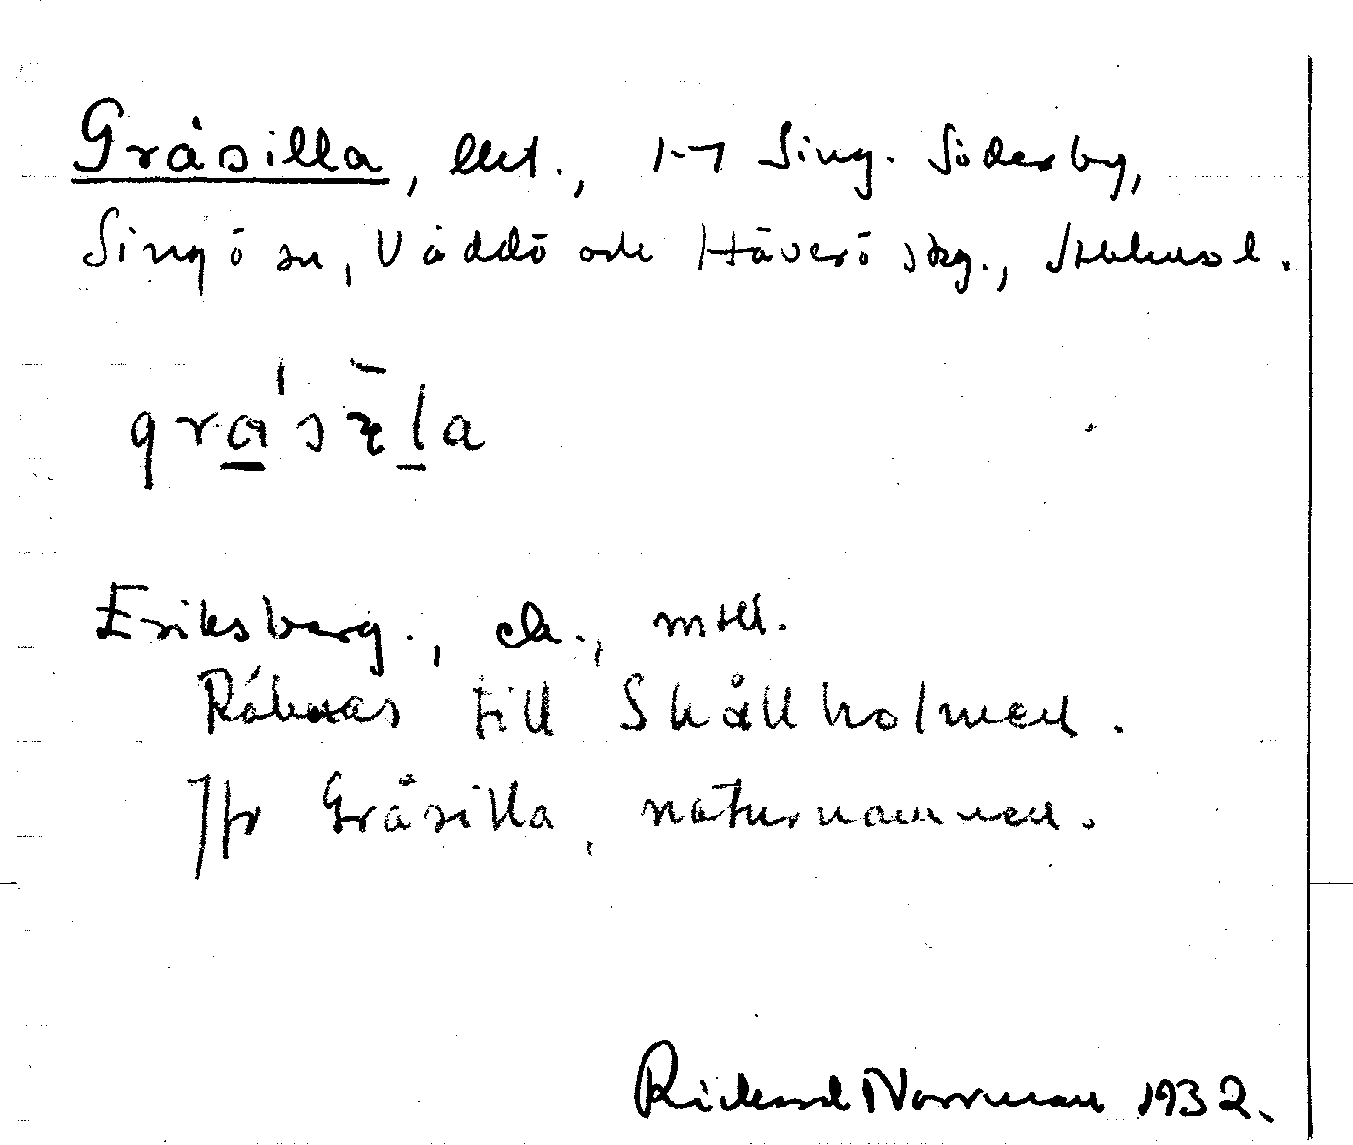 Gråsilla, lht., 1-7 Sing. Söderby,
Singö sn, Väddö och Häverö skg., Sthlms l.
Eriksberg., ek., mtl.
Räknas till Skällholmen.
Jfr Gråsilla, naturnamnen.
Rickard Norrman 1932.